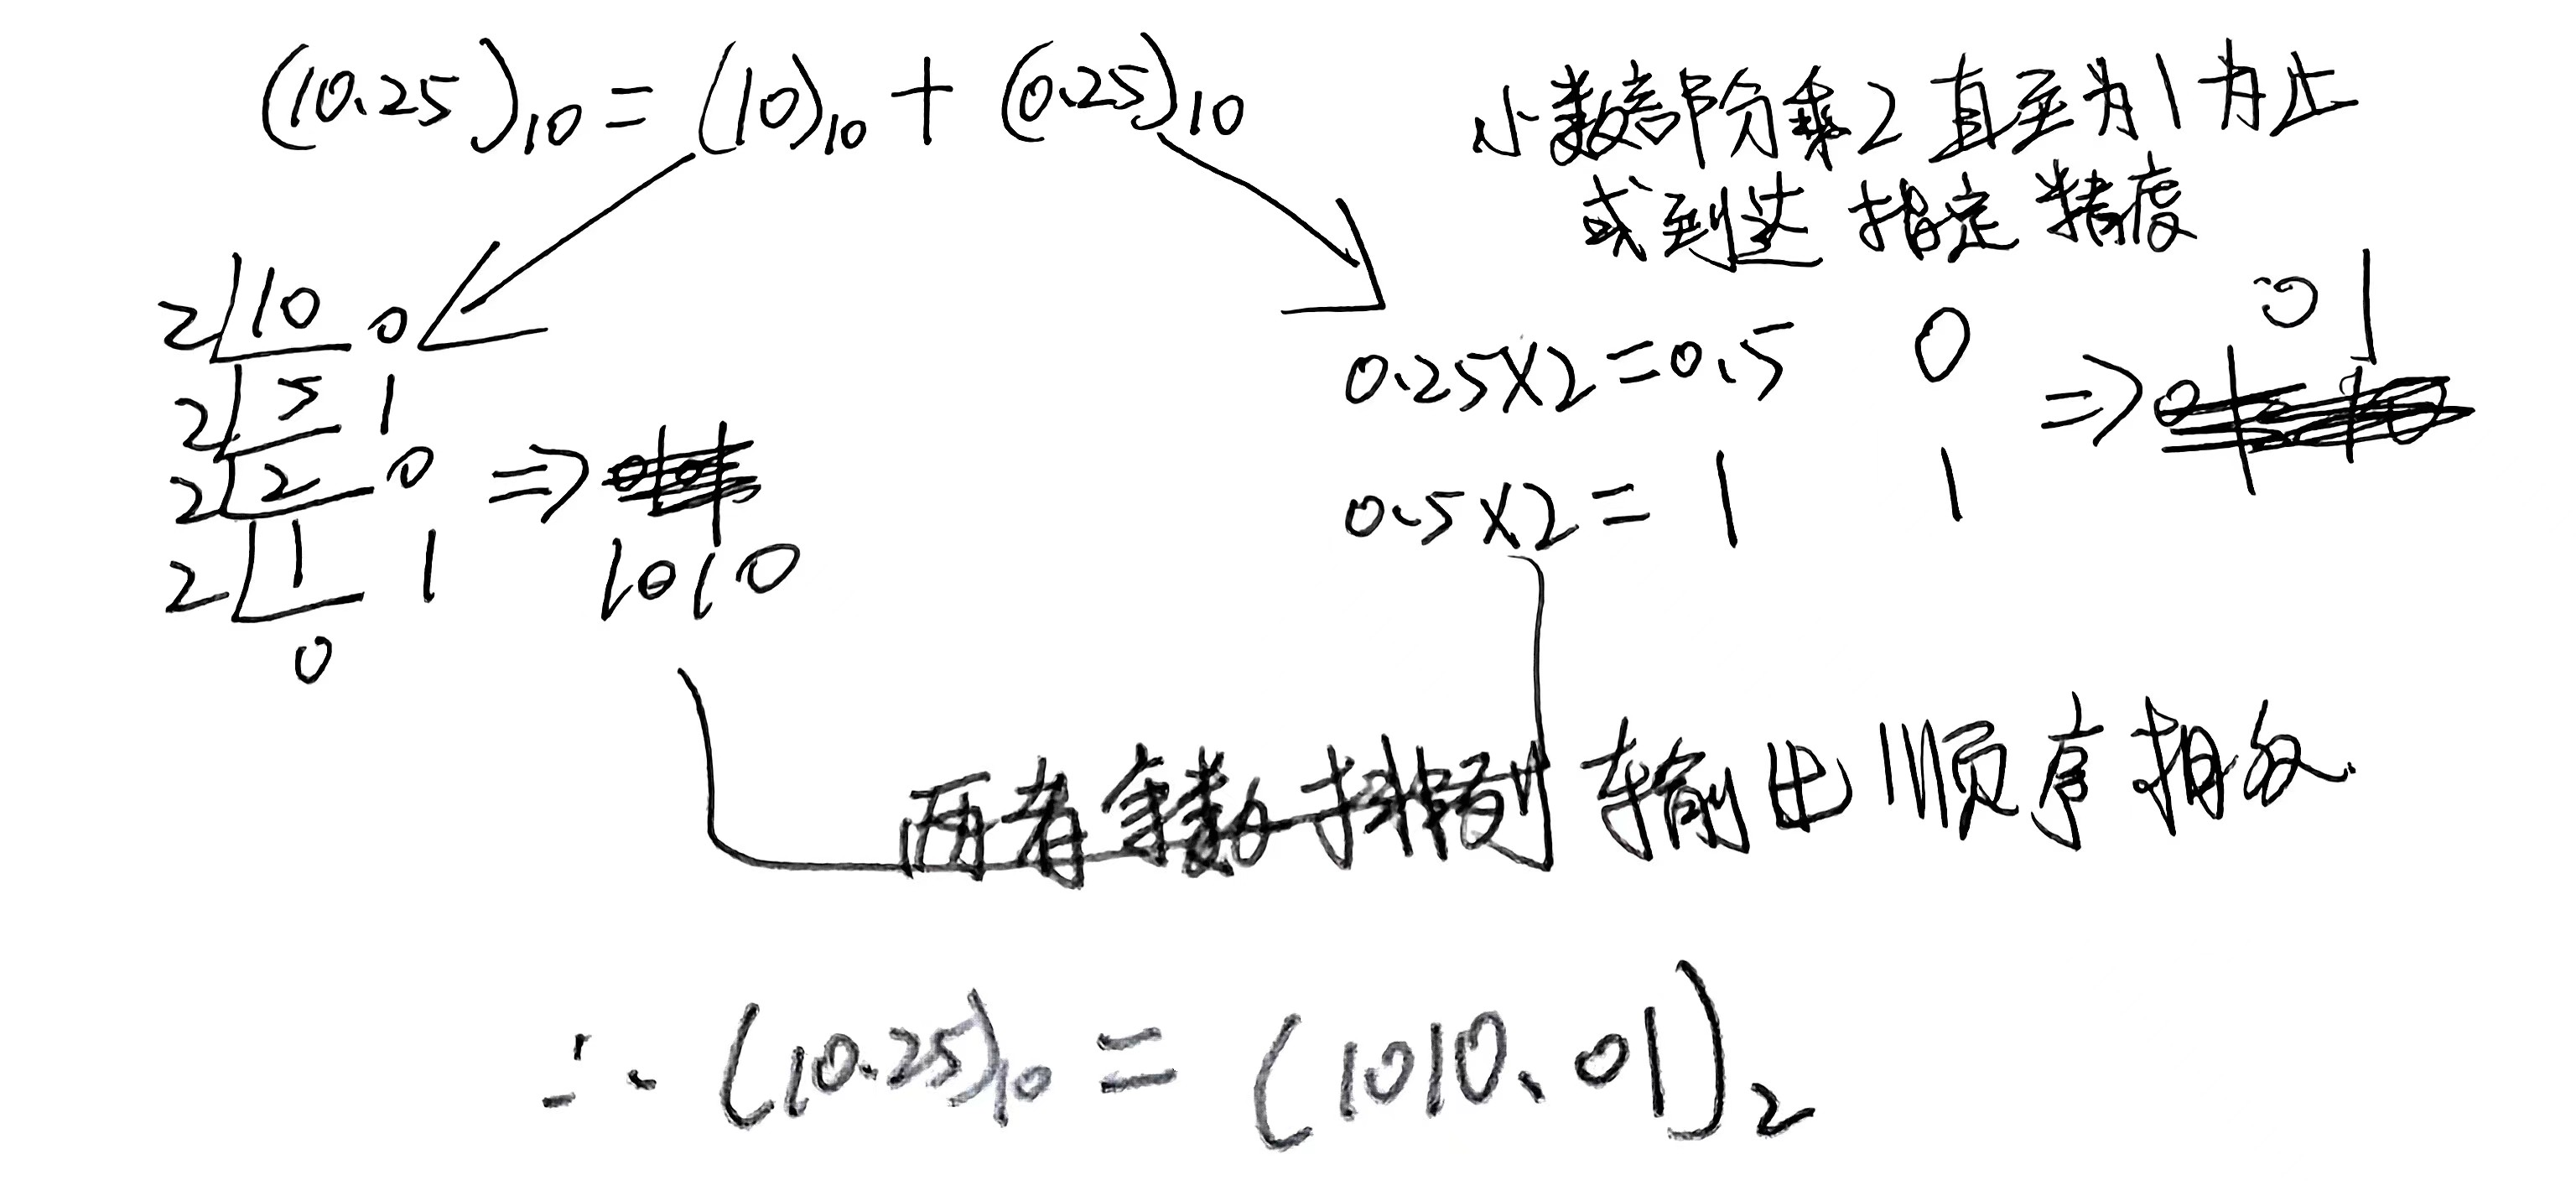 (10.25)₁₀ = (10)₁₀ + (0.25)₁₀
小数部分乘2直至为1为止
或到达指定精度
2 10 0
2 5 1
2 2 0
2 1 1
0
⇒ 1010
0.25×2=0.5 0
0.5×2=1 1
⇒ 01
两者余数排列输出顺序相反.
∴ (10.25)₁₀ = (1010.01)₂